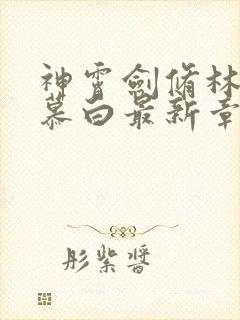 神霄剑脩林
慕白最新章
彤紫醬